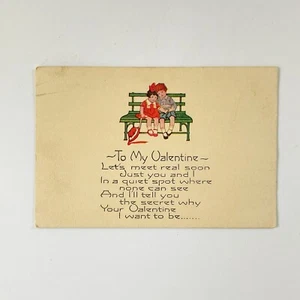 ~To My Valentine~
Let's meet real soon
Just you and I
In a quiet spot where
none can see
And I'll tell you
the secret why
Your Valentine
I want to be.......